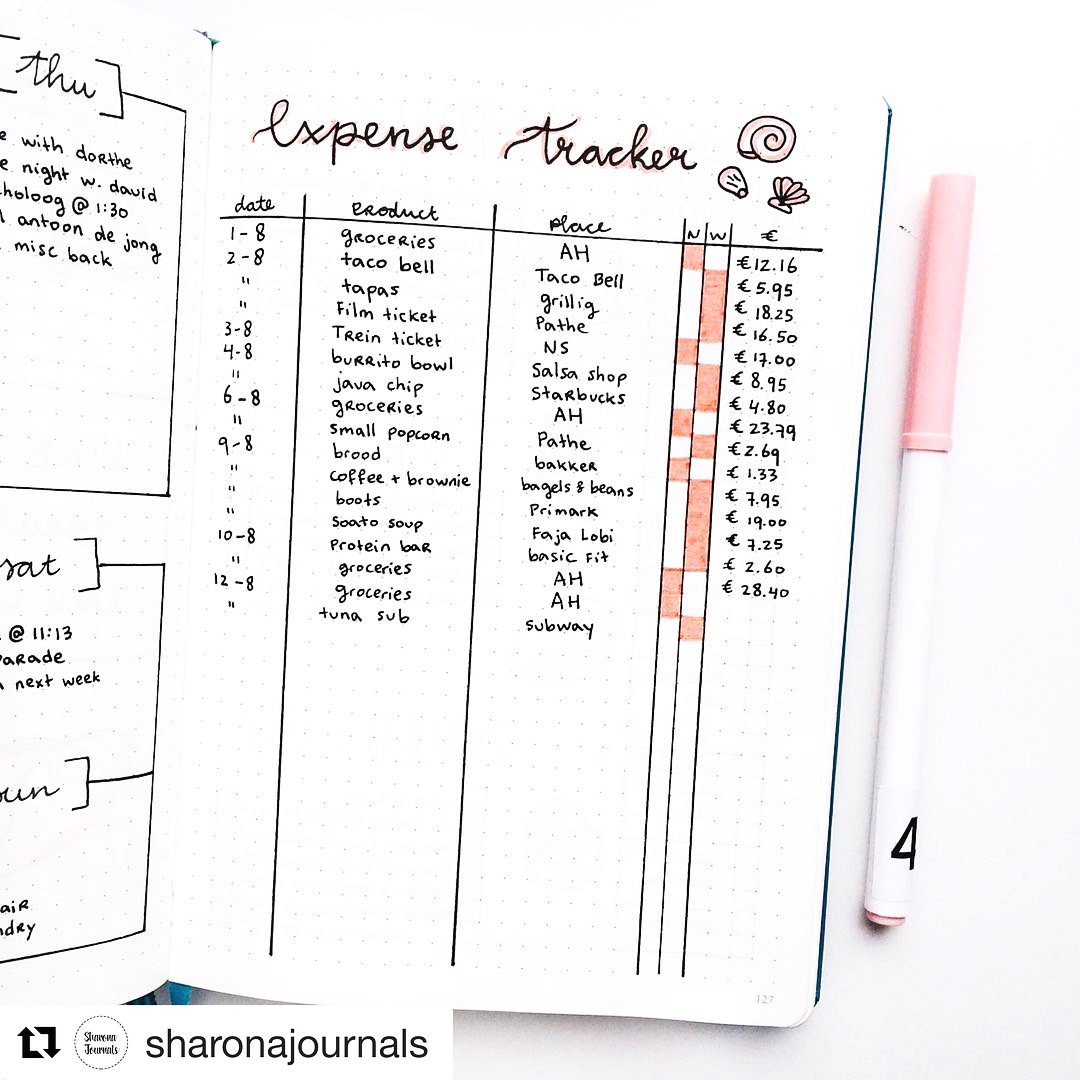 thu
e with dorthe
e night w. david
choloog @ 1:30
l antoon de jong
misc back
sat
@ 11:13
parade
next week
sun
air
ndry
Expense tracker
date product place N W €
1-8 groceries AH €12.16
2-8 taco bell Taco Bell €5.95
" tapas grillig €18.25
" Film ticket Pathe €16.50
3-8 Trein ticket NS €17.00
4-8 burrito bowl Salsa shop €8.95
" java chip Starbucks €4.80
6-8 groceries AH €23.79
" small popcorn Pathe €2.69
9-8 brood bakker €1.33
" coffee + brownie bagels & beans €7.95
" boots Primark €19.00
" soato soup Faja Lobi €7.25
10-8 Protein bar basic Fit €2.60
" groceries AH €28.40
12-8 groceries AH
" tuna sub subway
127
4
Sharona
Journals
sharonajournals